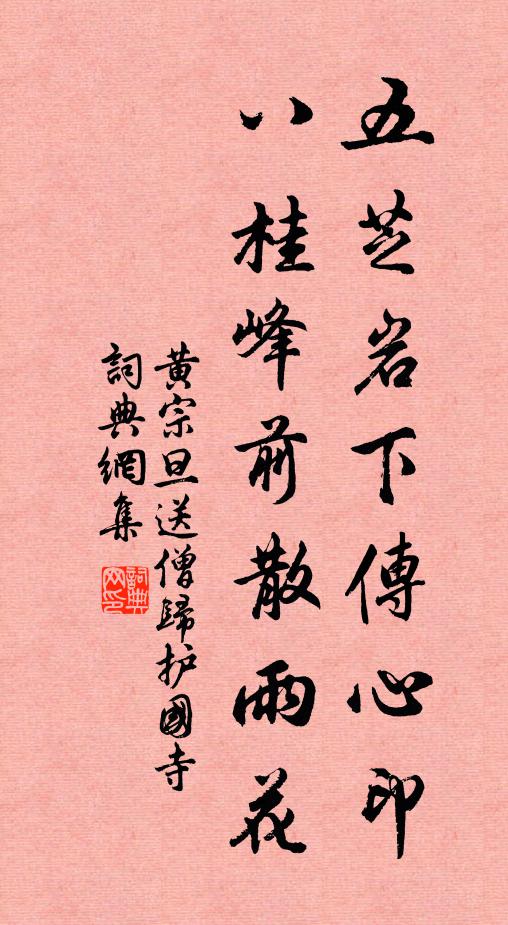 五芝岩下傳心印
八桂峰前散雨花
黄宗旦送僧歸护國寺
詞典網集
詞典网印